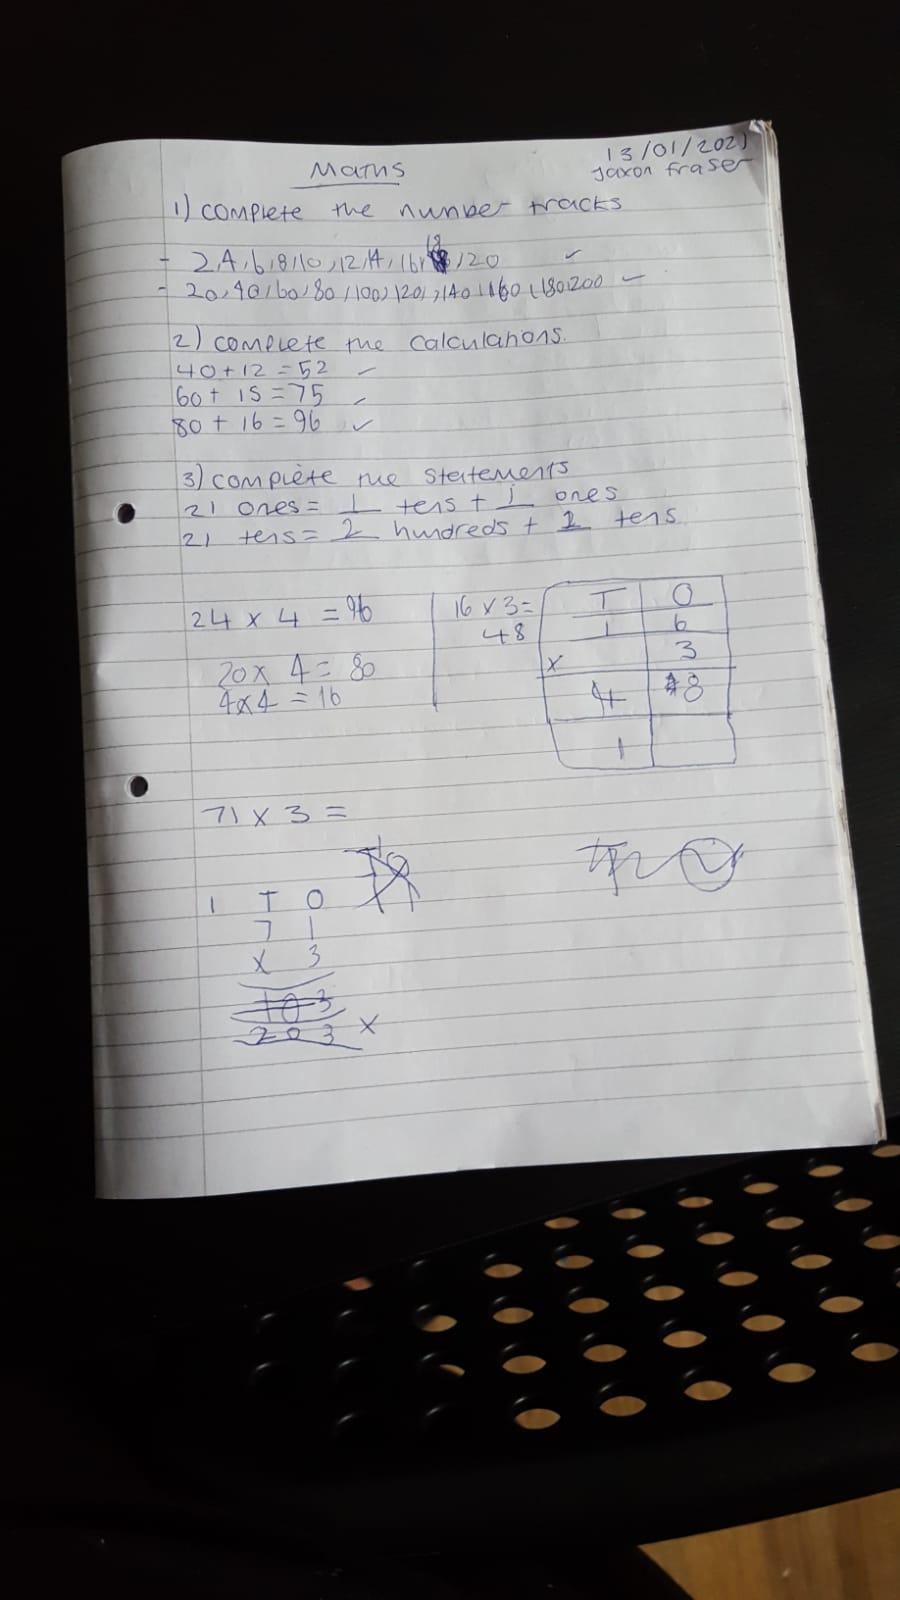 13/01/2021
Maths
Jaxon fraser
1) complete the number tracks
- 2,4,6,8,10,12,14,16,18,20 ✓
- 20,40,60,80,100,120,140,160,180,200 ✓
2) complete the calculations.
40+12=52 ✓
60+15=75 ✓
80+16=96 ✓
3) complete the statements
21 ones = 1 tens + 1 ones
21 tens = 2 hundreds + 1 tens
24 x 4 = 96
20 x 4 = 80
4x4 = 16
16 x 3 =
48
T O
1 6
x 3
4 8
1
71 x 3 =
1 T O
7 1
x 3
103
203 x